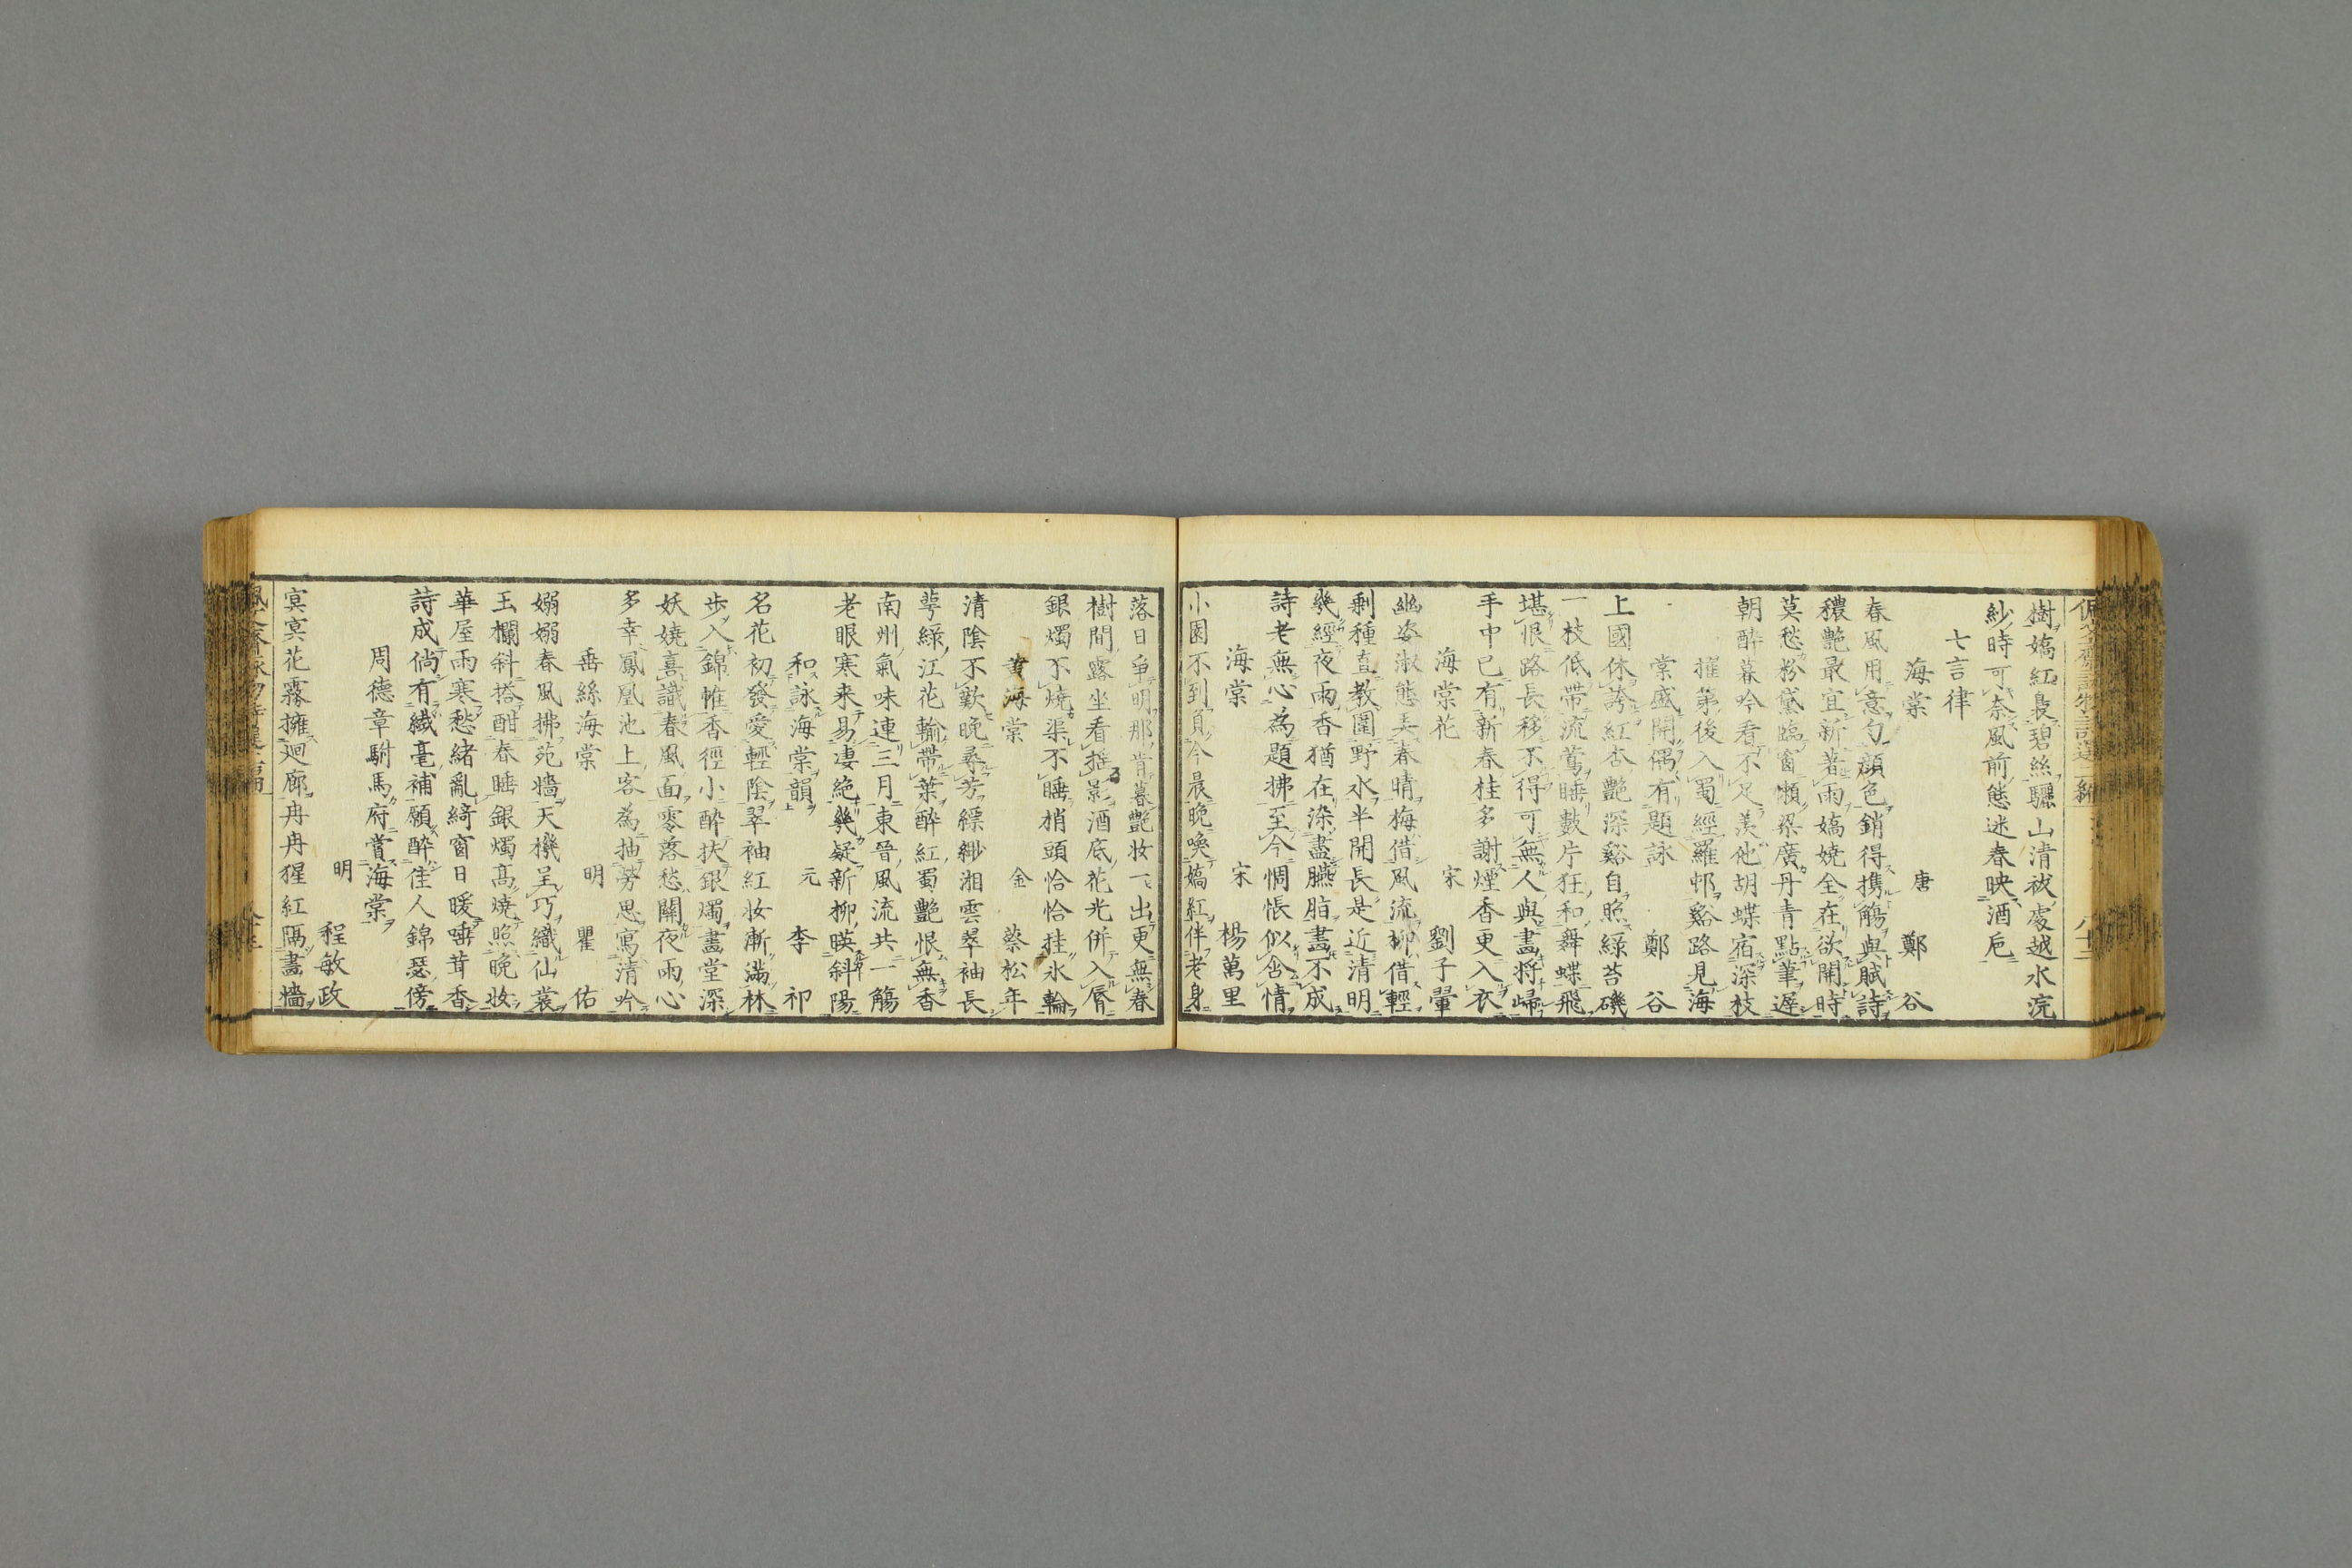 樹嬌紅裊碧絲驪山清祓處越水浣
紗時可奈風前態迷春映酒卮
七言律
海棠 唐 鄭谷
春風用意勻顏色銷得携觴與賦詩
穠艷最宜新著雨嬌嬈全在欲開時
莫愁粉黛臨窗懶梁廣丹青點筆遲
朝醉暮吟看不足羨他胡蝶宿深枝
擢第後入蜀經羅邨谿路見海
棠盛開偶有題詠 鄭谷
上國休誇紅杏艷深谿自照綠苔磯
一枝低帶流鶯睡數片狂和舞蝶飛
堪恨路長移不得可無人與畫将歸
手中已有新春桂多謝煙香更入衣
海棠花 宋 劉子翬
幽姿淑態弄春晴梅借風流柳借輕
剩種直教圍野水半開長是近清明
幾經夜雨香猶在染盡臙脂畫不成
詩老無心為題拂至今惆悵似含情
海棠 宋 楊萬里
小園不到負今晨晚喚嬌紅伴老身
落日爭明那肯暮艷妆一出更無春
樹間露坐看搖影酒底花光併入唇
銀燭不燒渠不睡梢頭恰恰挂氷輪
黄海棠 金 蔡松年
清陰不歎晚尋芳縹緲湘雲翠袖長
萼綠江花輸帶葉醉紅蜀艷恨無香
南州氣味連三月東晉風流共一觴
老眼寒来易凄絕幾疑新柳暎斜陽
和詠海棠韻 元 李祁
名花初發愛輕陰翠袖紅妆漸滿林
步入錦帷香徑小醉扶銀燭畫堂深
妖嬈喜識春風面零落愁關夜雨心
多幸鳳凰池上客為抽勞思寫清吟
垂絲海棠 明 瞿佑
嫋嫋春風拂苑墻天機呈巧織仙裳
玉欄斜搭酣春睡銀燭高燒照晚妆
華屋雨寒愁緒亂綺窗日暖唾茸香
詩成倘有纖毫補願醉佳人錦瑟傍
周德章駙馬府賞海棠
明 程敏政
冥冥花霧擁迴廊冉冉猩紅隔畫墻